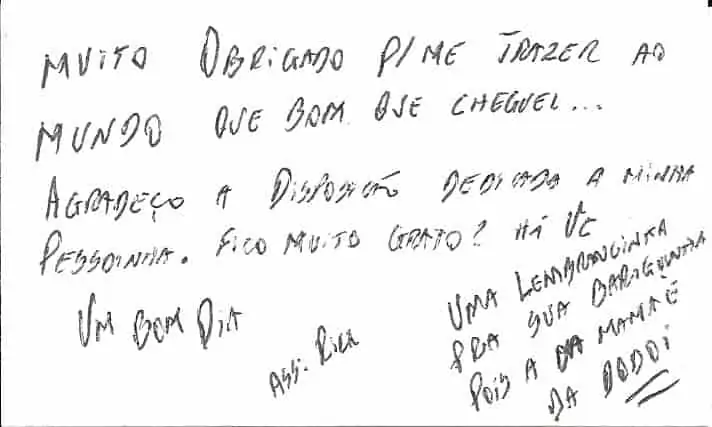 MUITO OBRIGADO P/ ME TRAZER AO
MUNDO QUE BOM QUE CHEGUEI...
AGRADEÇO A DISPOSIÇÃO DEDICADA A MINHA
PESSOINHA. FICO MUITO GRATO? HÁ VC
UM BOM DIA
ASS.
UMA LEMBRANCINHA
PRA SUA BARIGUINHA
POIS A DA MAMA É
DA DODOI